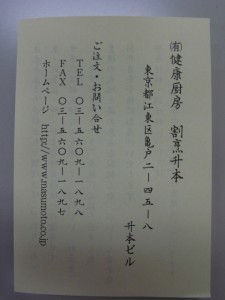 ㈲健康厨房 割烹升本
東京都江東区亀戸二ー四五ー八
升本ビル
ご注文・お問い合せ
TEL 〇三ー五六〇九ー一八九八
FAX 〇三ー五六〇九ー一八九七
ホームページ http://www.masumoto.co.jp